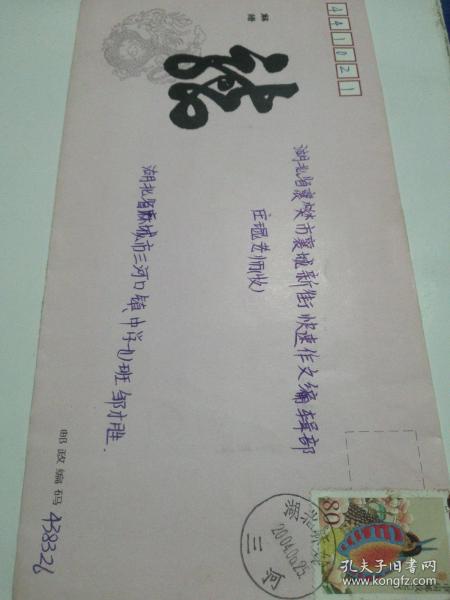 441021
湖北省襄樊市襄城新街快速作文编辑部
庄琨老师(收)
湖北省麻城市三河口镇中学
班邹才胜.
邮政编码 438326
80
2004.0
25
湖北
三河
孔夫子旧书网
www.kongfz.com